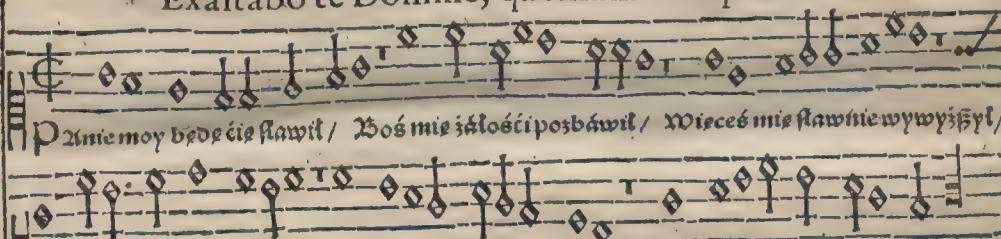 Exaltabo te Domine,
Pánie moy będę ćię sławił / Boś mię żáłośći pozbáwił / Więceś mię sławnie wywyższył /